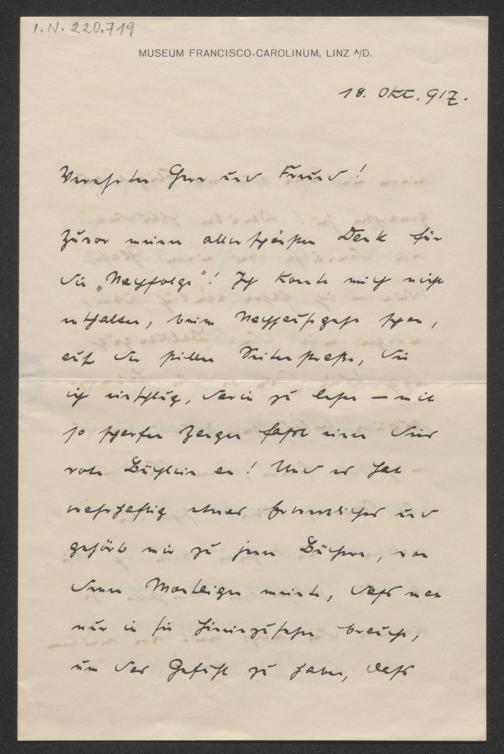 I.N. 220.719
MUSEUM FRANCISCO-CAROLINUM, LINZ A/D.
18. Okt. 917.
Verehrter Herr und Freund!
Zuvor meinen allerschönsten Dank für
die „Nachfolge“! Ich konnte mich nicht
enthalten, beim Nachhausegehen schon,
auf der stillen Seitenstraße, die
ich einschlug, darin zu lesen — mit
so scharfen Zangen faßt einen dies
rote Büchlein an! Und es hat
wahrhaftig etwas und
gehört mir zu jenen Büchern, von
denen meinte, daß man
nur in sie hineinzusehen brauche,
um das Gefühl zu haben, daß